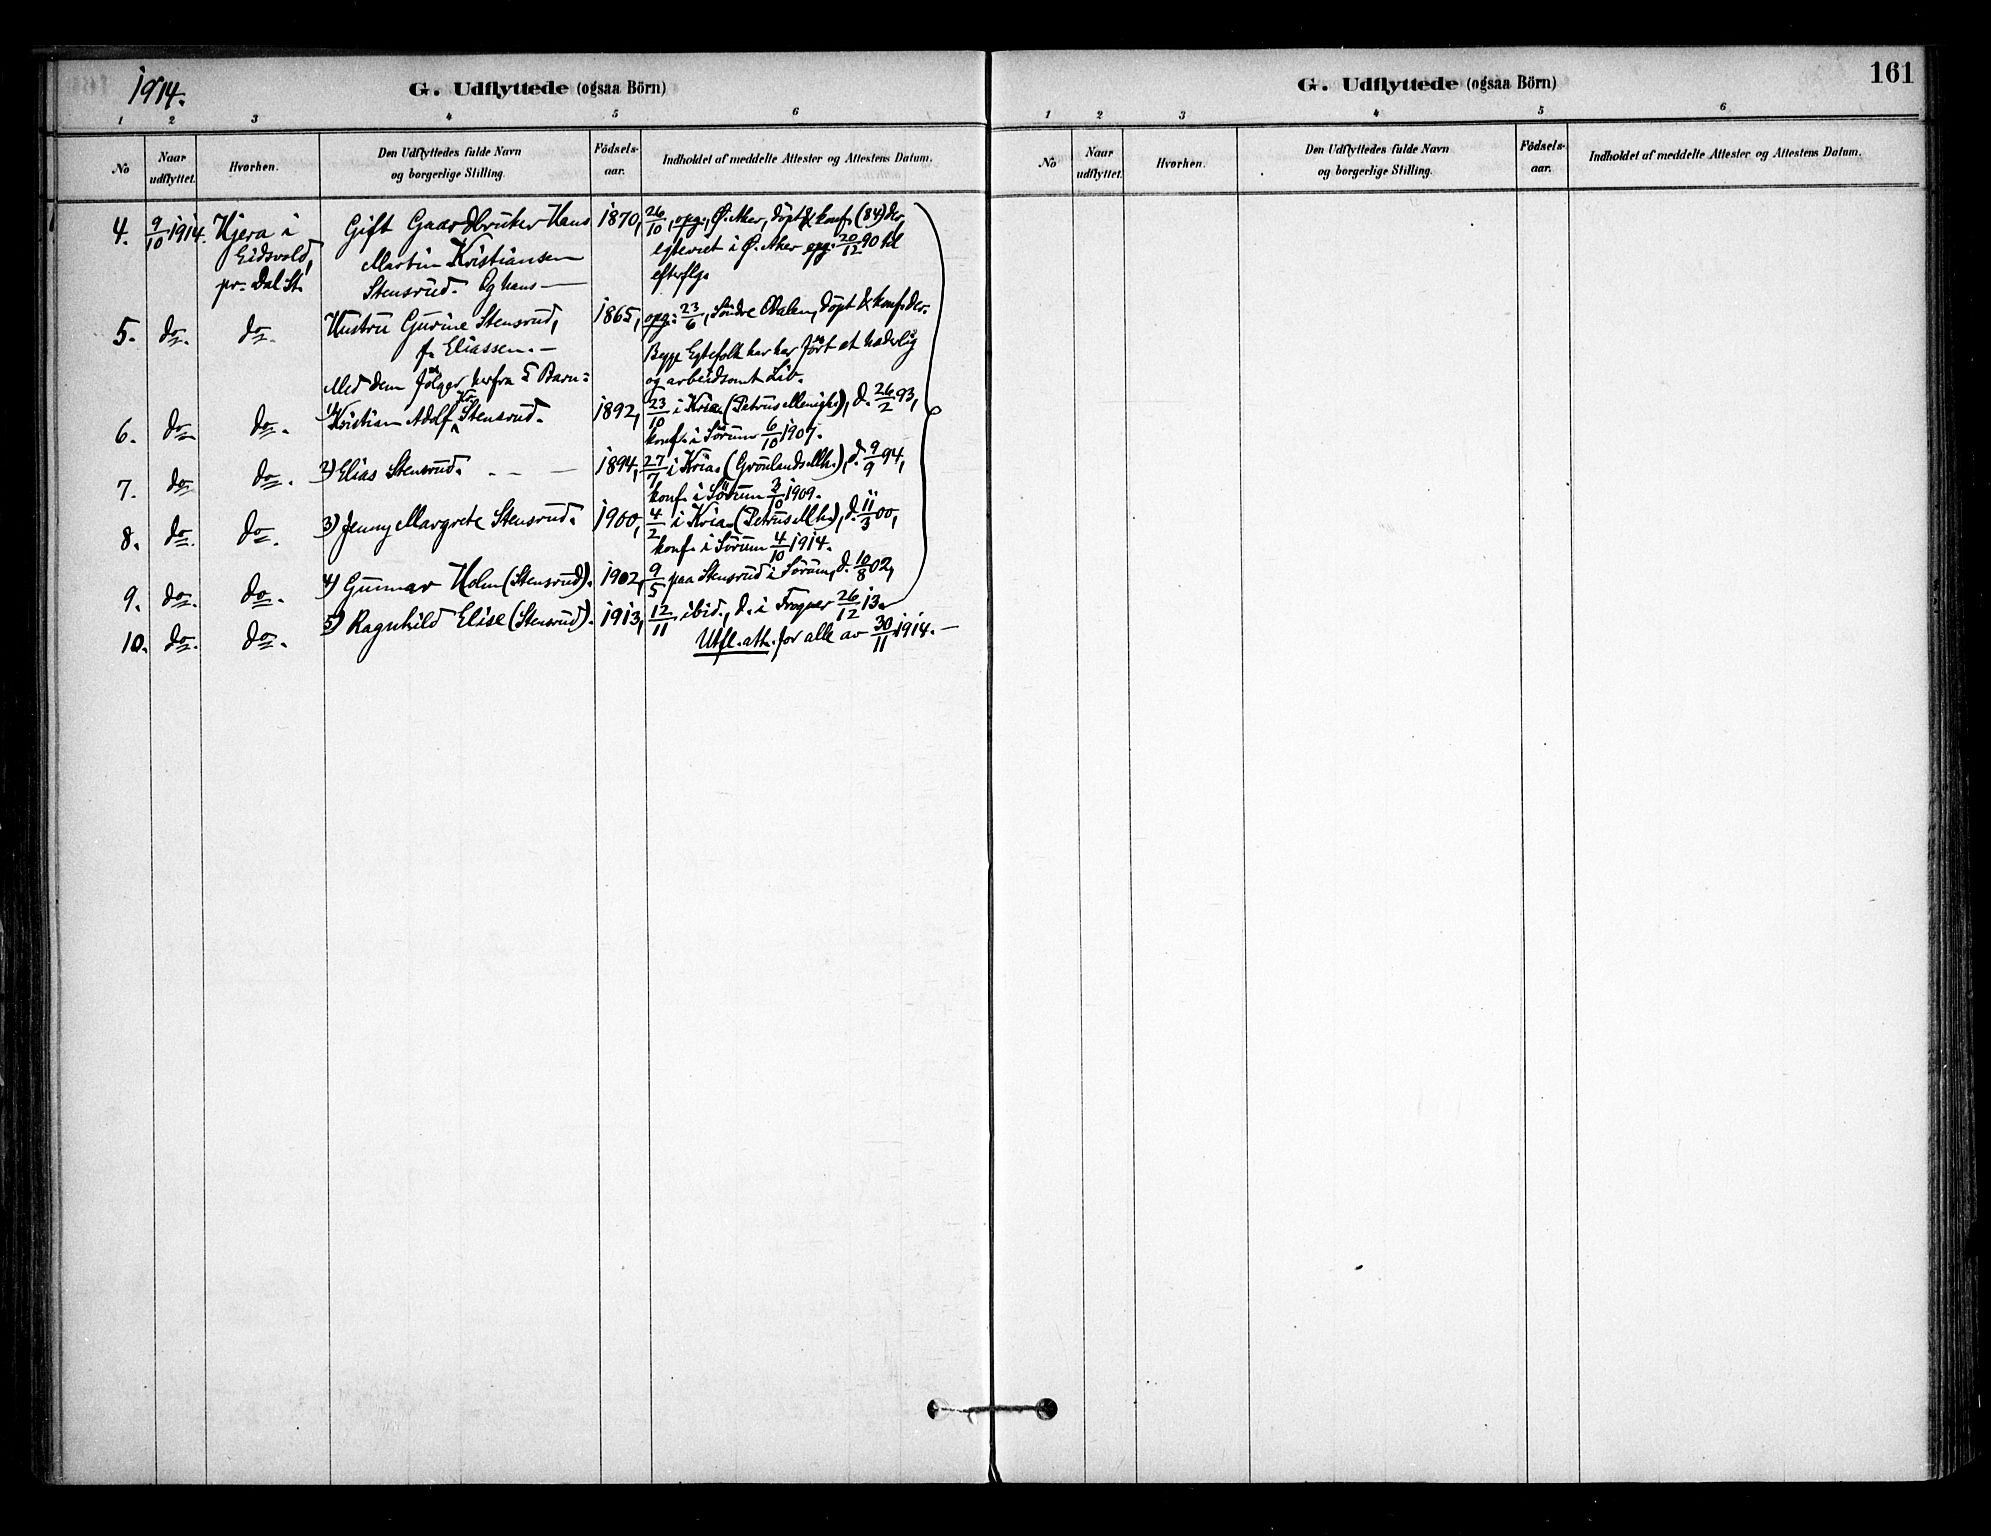 1914.
G. Udflyttede (ogsaa Börn)
1 2 3 4 5 6
No Naar udflyttet. Hvorhen. Den Udflyttedes fulde Navn og borgerlige Stilling. Födsels-aar. Indholdet af meddelte Attester og Attestens Datum.
4. 9/10 1914. Kjera i Gift Gaardbruker Hans 1870, 26/10, opg., Ø. Aker, döpt & konf. (84) der,
Eidsvold, Martin Kristiansen egteviet i Ø. Aker opg. 20/12 90 til
pr. Dal St. Stensrud. Og hans — efterflg.
5. do. do. Hustru Gurine Stensrud, 1865, opg.: 23/6, Söndre Odalen, döpt & konf. der.
f. Eliassen. — Begge Egtefolk har her fört et hæderlig
Med dem fölger herfra 5 Barn: og arbeidsomt Liv.
6. do. do. 1) Kristian Adolf Kr. Stensrud. 1892, 23/10 i Kria (Petrus Menigh.), d. 26/2 93,
konf. i Sörum 6/10 1907.
7. do. do. 2) Elias Stensrud. — 1894, 27/7 i Kria (Grönlands Mh.), d. 9/9 94,
konf. i Sörum 3/10 1909.
8. do. do. 3) Jenny Margrete Stensrud. 1900, 4/2 i Kria (Petrus Mh.), d. 11/3 00,
konf. i Sörum 4/10 1914.
9. do. do. 4) Gunnar Holm (Stensrud). 1902, 9/5 paa Stensrud i Sörum, d. 10/8 02,
10. do. do. 5) Ragnhild Elise (Stensrud). 1913, 12/11 ibid., d. i Frogner 26/12 13.
Utfl. att. for alle av 30/11 1914. —
161
G. Udflyttede (ogsaa Börn)
1 2 3 4 5 6
No Naar udflyttet. Hvorhen. Den Udflyttedes fulde Navn og borgerlige Stilling. Födsels-aar. Indholdet af meddelte Attester og Attestens Datum.